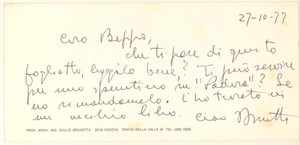 27-10-77
Caro Beppo,
che ti pare di questo
foglietto, leggilo bene,? Ti può servire
per uno spuntino in "Padova"? Se
no rimandamelo. L'ho trovato in
un vecchio libro. Ciao Brunetta
PROF. ARCH. ING. GIULIO BRUNETTA 35100 PADOVA PRATO DELLA VALLE TEL.